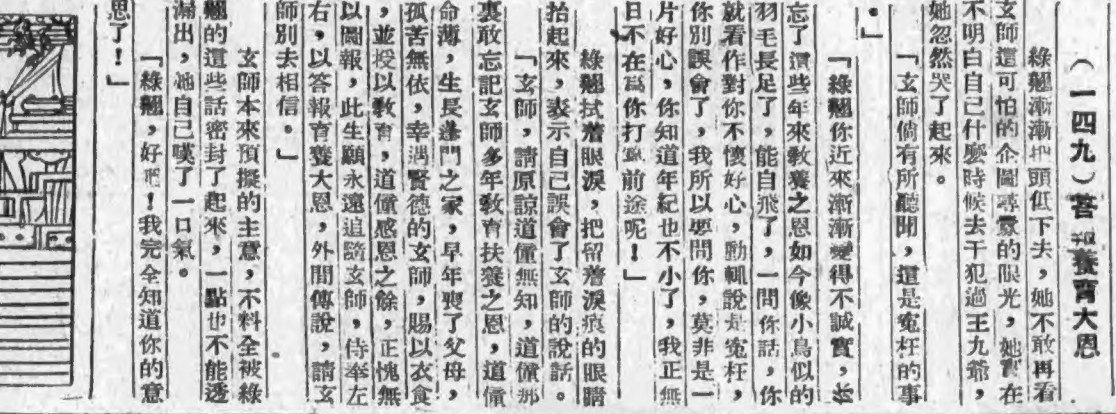 （一四九）答報養育大恩
綠翹漸漸把頭低下去，她不敢再看
玄師這可怕的企圖尋釁的眼光，她實在
不明白自己什麼時候去干犯過王九爺，
她忽然哭了起來。
「玄師倘有所聽聞，這是寃枉的事
。」
「綠翹你近來漸漸變得不誠實，
忘了這些年來教養之恩如今像小鳥似的
羽毛長足了，能自飛了，一問你話，你
就看作對你不懷好心，動輒說是寃枉，
你別誤會了，我所以要問你，莫非是一
片好心，你知道年紀也不小了，我正無
日不在爲你打算前途呢！」
綠翹拭着眼淚，把留着淚痕的眼睛
抬起來，表示自己誤會了玄師的說話。
「玄師，請原諒道僮無知，道僮那
裏敢忘記玄師多年教育扶養之恩，道僮
命薄，生長蓬門之家，早年喪了父母，
孤苦無依，幸遇賢德的玄師，賜以衣食
，並授以教育，道僮感恩之餘，正愧無
以圖報，此生願永遠追隨玄師，侍奉左
右，以答報育養大恩，外間傳說，請玄
師別去相信。」
玄師本來預擬的主意，不料全被綠
翹的這些話密封了起來，一點也不能透
漏出，她自己嘆了一口氣。
「綠翹，好吧！我完全知道你的意
思了！」